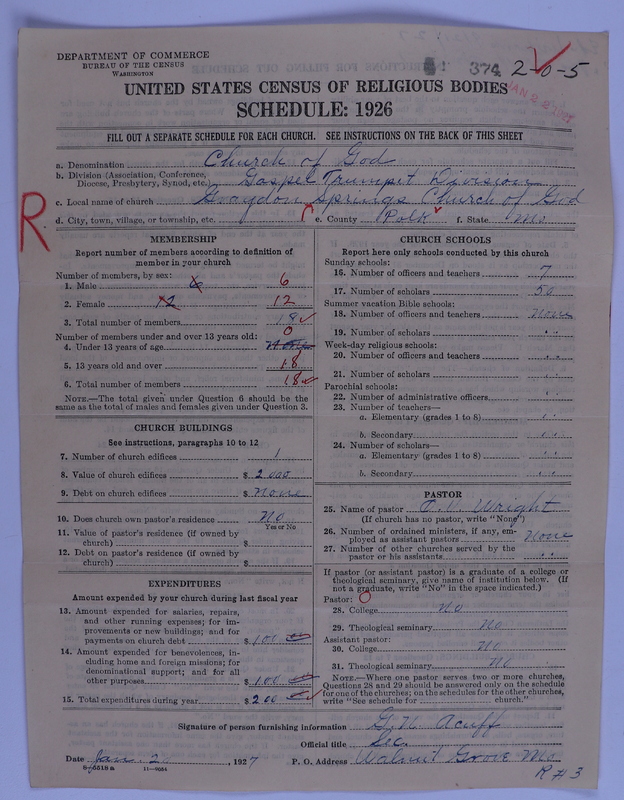 DEPARTMENT OF COMMERCE
BUREAU OF THE CENSUS
WASHINGTON
374 2-0-5
JAN 22 1927
UNITED STATES CENSUS OF RELIGIOUS BODIES
SCHEDULE: 1926
FILL OUT A SEPARATE SCHEDULE FOR EACH CHURCH. SEE INSTRUCTIONS ON THE BACK OF THIS SHEET
R
a. Denomination Church of God
b. Division (Association, Conference, Diocese, Presbytery, Synod, etc.) Gospel Trumpit Division
c. Local name of church Graydon Springs Church of God
d. City, town, village, or township, etc. e. County Polk f. State Mo
MEMBERSHIP
Report number of members according to definition of
member in your church
Number of members, by sex:
1. Male 6 6
2. Female 12 12
3. Total number of members 18
Number of members under and over 13 years old: 0
4. Under 13 years of age None
5. 13 years old and over 18
6. Total number of members 18
NOTE.—The total given under Question 6 should be
same as the total of males and females given under Question 3.
CHURCH BUILDINGS
See instructions, paragraphs 10 to 12
7. Number of church edifices 1
8. Value of church edifices $ 2000
9. Debt on church edifices $ None
10. Does church own pastor's residence No
Yes or No
11. Value of pastor's residence (if owned by
church) $
12. Debt on pastor's residence (if owned by
church) $
EXPENDITURES
Amount expended by your church during last fiscal year
13. Amount expended for salaries, repairs,
and other running expenses; for im-
provements or new buildings; and for
payments on church debt $ 100
14. Amount expended for benevolences, in-
cluding home and foreign missions; for
denominational support; and for all
other purposes $ 100
15. Total expenditures during year $ 200
CHURCH SCHOOLS
Report here only schools conducted by this church
Sunday schools:
16. Number of officers and teachers 7
17. Number of scholars 50
Summer vacation Bible schools:
18. Number of officers and teachers None
19. Number of scholars "
Week-day religious schools:
20. Number of officers and teachers "
21. Number of scholars "
Parochial schools:
22. Number of administrative officers "
23. Number of teachers—
a. Elementary (grades 1 to 8) "
b. Secondary "
24. Number of scholars—
a. Elementary (grades 1 to 8) "
b. Secondary "
PASTOR
25. Name of pastor Wright
(If church has no pastor, write "None")
26. Number of ordained ministers, if any, em-
ployed as assistant pastors None
27. Number of other churches served by the
pastor or his assistants "
If pastor (or assistant pastor) is a graduate of a college or
theological seminary, give name of institution below. (If
not a graduate, write "No" in the space indicated.)
Pastor: 0
28. College No
29. Theological seminary No
Assistant pastor:
30. College No
31. Theological seminary No
NOTE.—Where one pastor serves two or more churches,
Questions 28 and 29 should be answered only on the schedule
for one of the churches; on the schedules for the other churches,
write "See schedule for church."
Signature of person furnishing information G. W. Acuff
Official title Sec
Date Jan. 2, 1927 P. O. Address Walnut Grove Mo
8-5518a 11-9084 R # 3